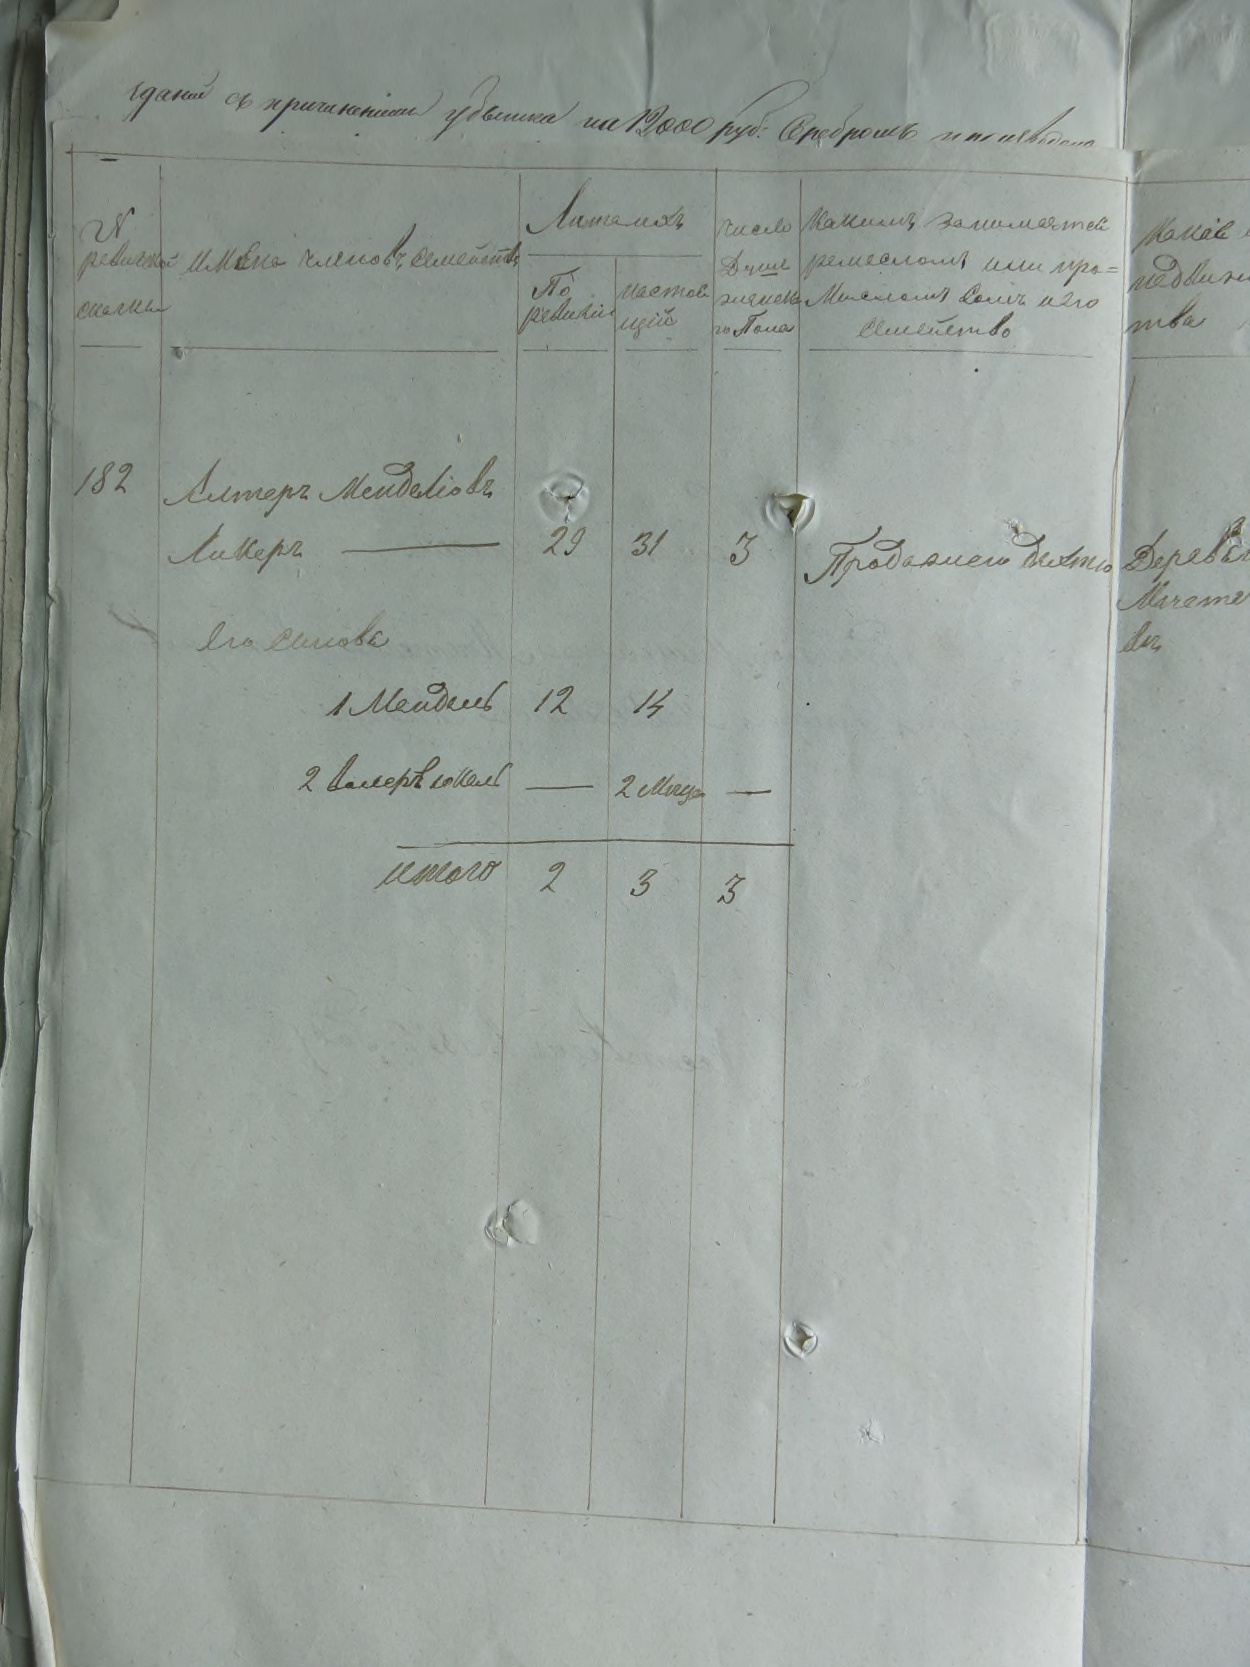 зданий съ причиненіемъ убытка на 12000 руб: Серебромъ
№ ревизской сказки
Имена членовъ семействъ
Лѣтамъ
По ревизіи
настоящій
число Душъ женска го Пола
Какимъ занимается
ремесломъ или про=
мысломъ Самъ и его
семейство
Какое
недвиж
тва
182 Алтеръ Менделіовъ
Ликеръ — 29 31 3 Продажею Дехтю Дерев
Мѣсте
въ
Его Синовя
1 Мендель 12 14
2 — 2 Мѣсц —
Итого 2 3 3